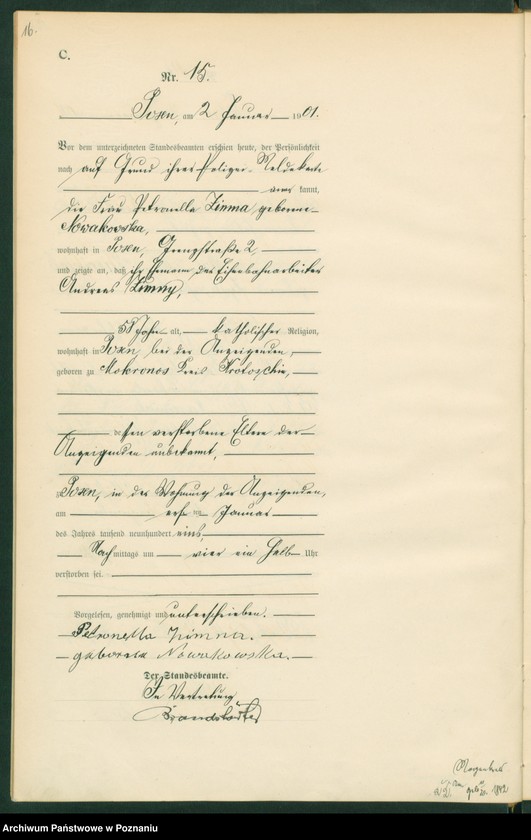 16.
C.
Nr. 15.
Posen, am 2 Januar 1901.
Vor dem unterzeichneten Standesbeamten erschien heute, der Persönlichkeit
nach auf Grund ihrer Polizei-Meldekarte
kannt,
die Frau Petronella Zimna geborene
Nowakowska,
wohnhaft in Posen, Grenzstraße 2,
und zeigte an, daß ihr Ehemann, der Eisenbahnarbeiter
Andreas Zimny,
58 Jahre alt, katholischer Religion,
wohnhaft in Posen, bei der Anzeigenden,
geboren zu Mokronos Kreis Krotoschin,
dessen verstorbene Eltern der
Anzeigenden unbekannt,
zu Posen, in der Wohnung der Anzeigenden,
am ersten Januar
des Jahres tausend neunhundert eins,
Nachmittags um vier ein halb Uhr
verstorben sei.
Vorgelesen, genehmigt und unterschrieben.
Petronella Zimna.
geborene Nowakowska.
Der Standesbeamte.
In Vertretung
Brandstädter
1842
Archiwum Państwowe w Poznaniu